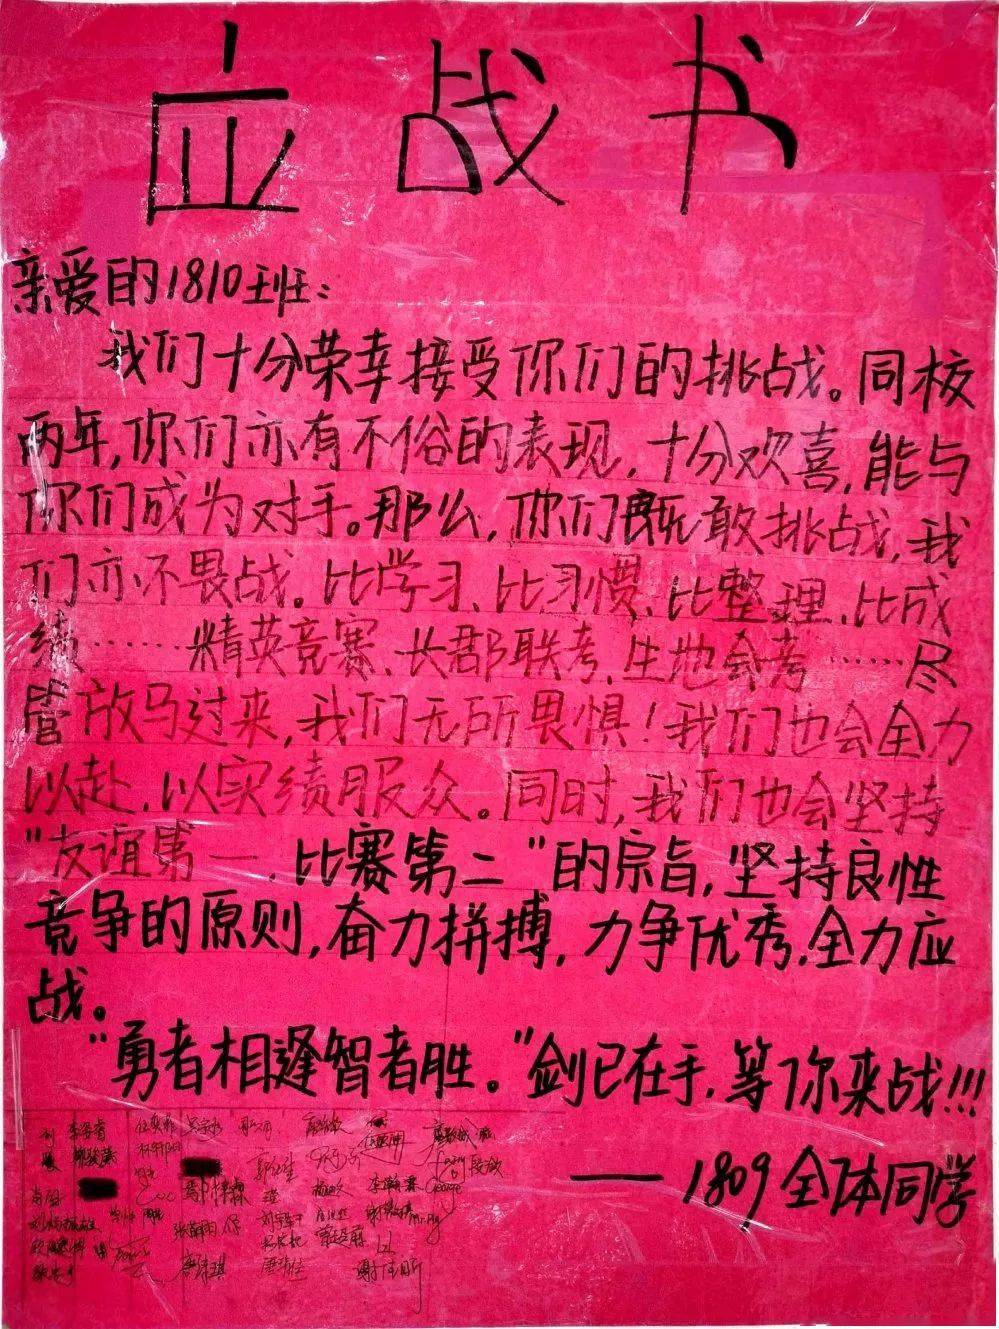 应战书
亲爱的1810班：
我们十分荣幸接受你们的挑战。同校
两年,你们亦有不俗的表现,十分欢喜,能与
你们成为对手。那么,你们既敢挑战,我
们亦不畏战。比学习、比习惯、比整理、比成
绩……精英竞赛、长郡联考、生地会考……尽
管放马过来,我们无所畏惧！我们也会全力
以赴,以实绩服众。同时,我们也会坚持
"友谊第一,比赛第二"的宗旨,坚持良性
竞争的原则,奋力拼搏,力争优秀,全力应
战。
"勇者相逢智者胜。"剑已在手,等你来战!!!
——1809全体同学